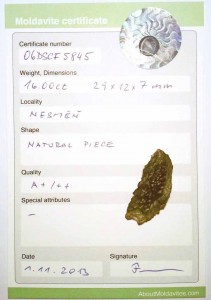 Moldavite certificate
Certificate number
06DSCF5845
Weight, Dimensions
16.00ct 29x12x7mm
Locality
NESMĚŇ
Shape
NATURAL PIECE
Quality
A+/++
Special attributes
–
Date
Signature
1.11.2013
AboutMoldavites.com